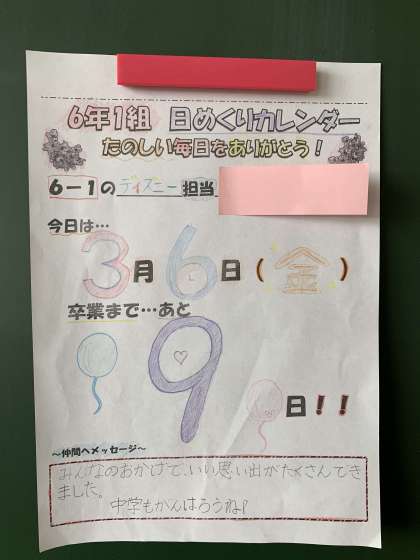 6年1組 日めくりカレンダー
たのしい毎日をありがとう！
6－1のディズニー担当
今日は…
3月6日（金）
卒業まで…あと
9日！！
～仲間へメッセージ～
みんなのおかげで、いい思い出がたくさんでき
ました。
中学もがんばろうね！